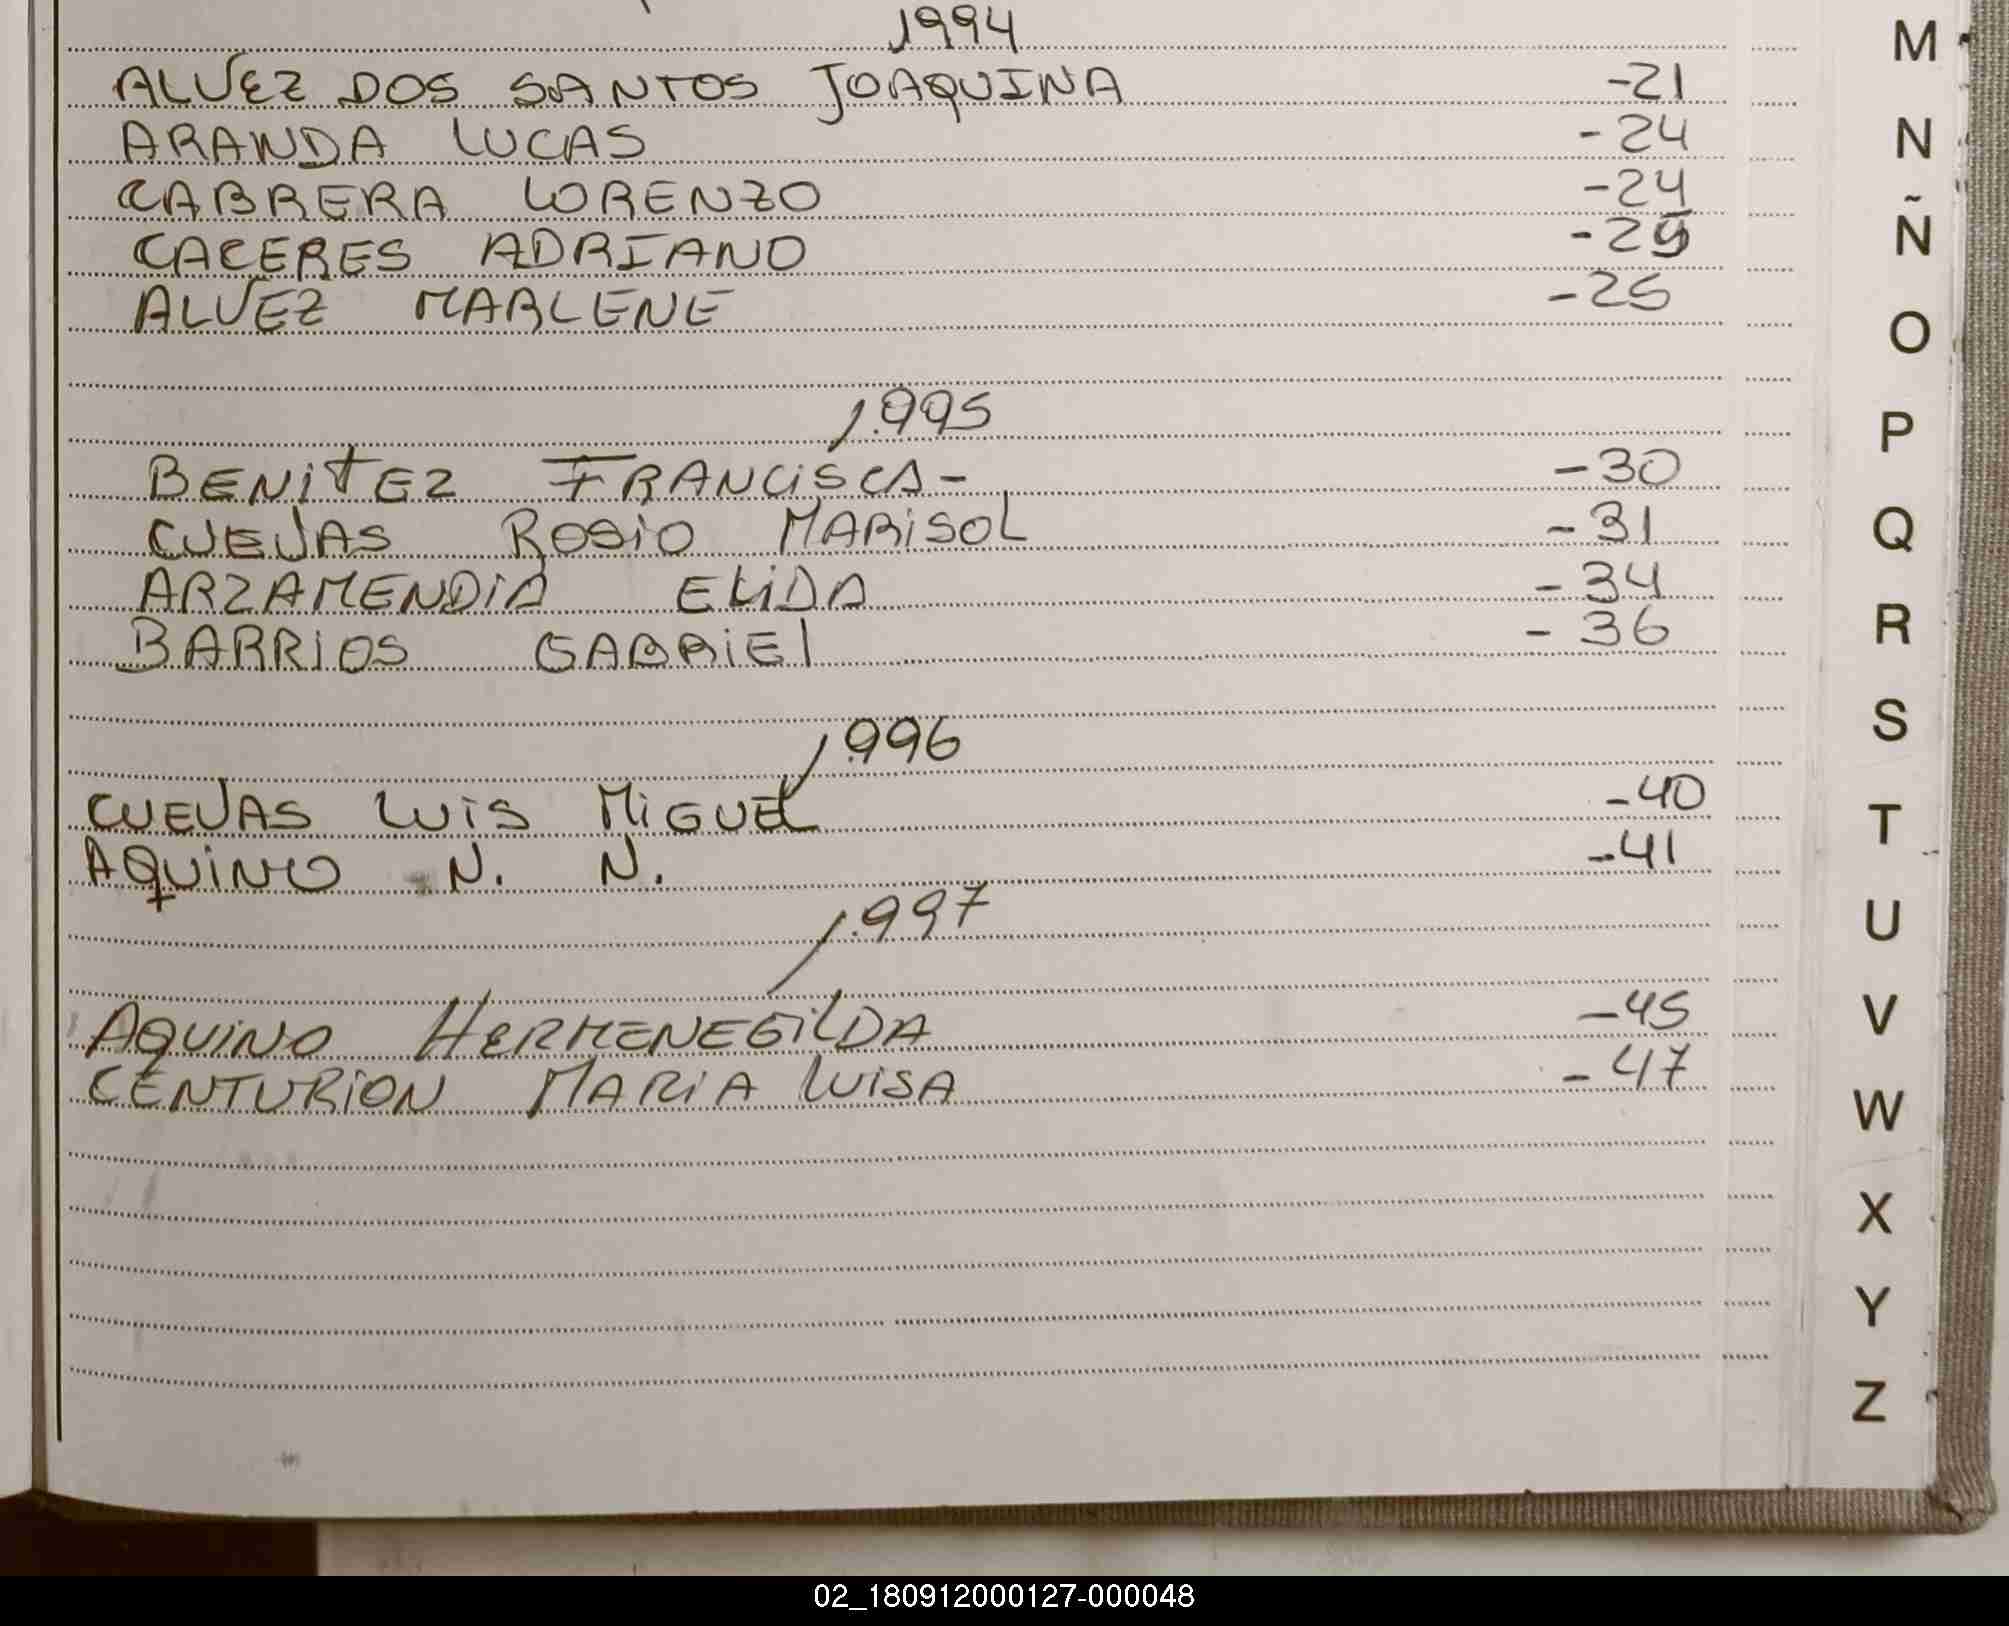 1994
ALVEZ DOS SANTOS JOAQUINA -21
ARANDA LUCAS -24
CABRERA LORENZO -24
CACERES ADRIANO
ALVEZ MARLENE -25
1.995
BENITEZ FRANCISCA- -30
CUEVAS ROSIO MARISOL -31
ARZAMENDIA ELIDA -34
BARRIOS GABRIEL -36
1.996
CUEVAS LUIS MIGUEL -40
AQUINO N. N. -41
1.997
AQUINO HERMENEGILDA -45
CENTURION MARIA LUISA -47
M
N
Ñ
O
P
Q
R
S
T
U
V
W
X
Y
Z
02_180912000127-000048